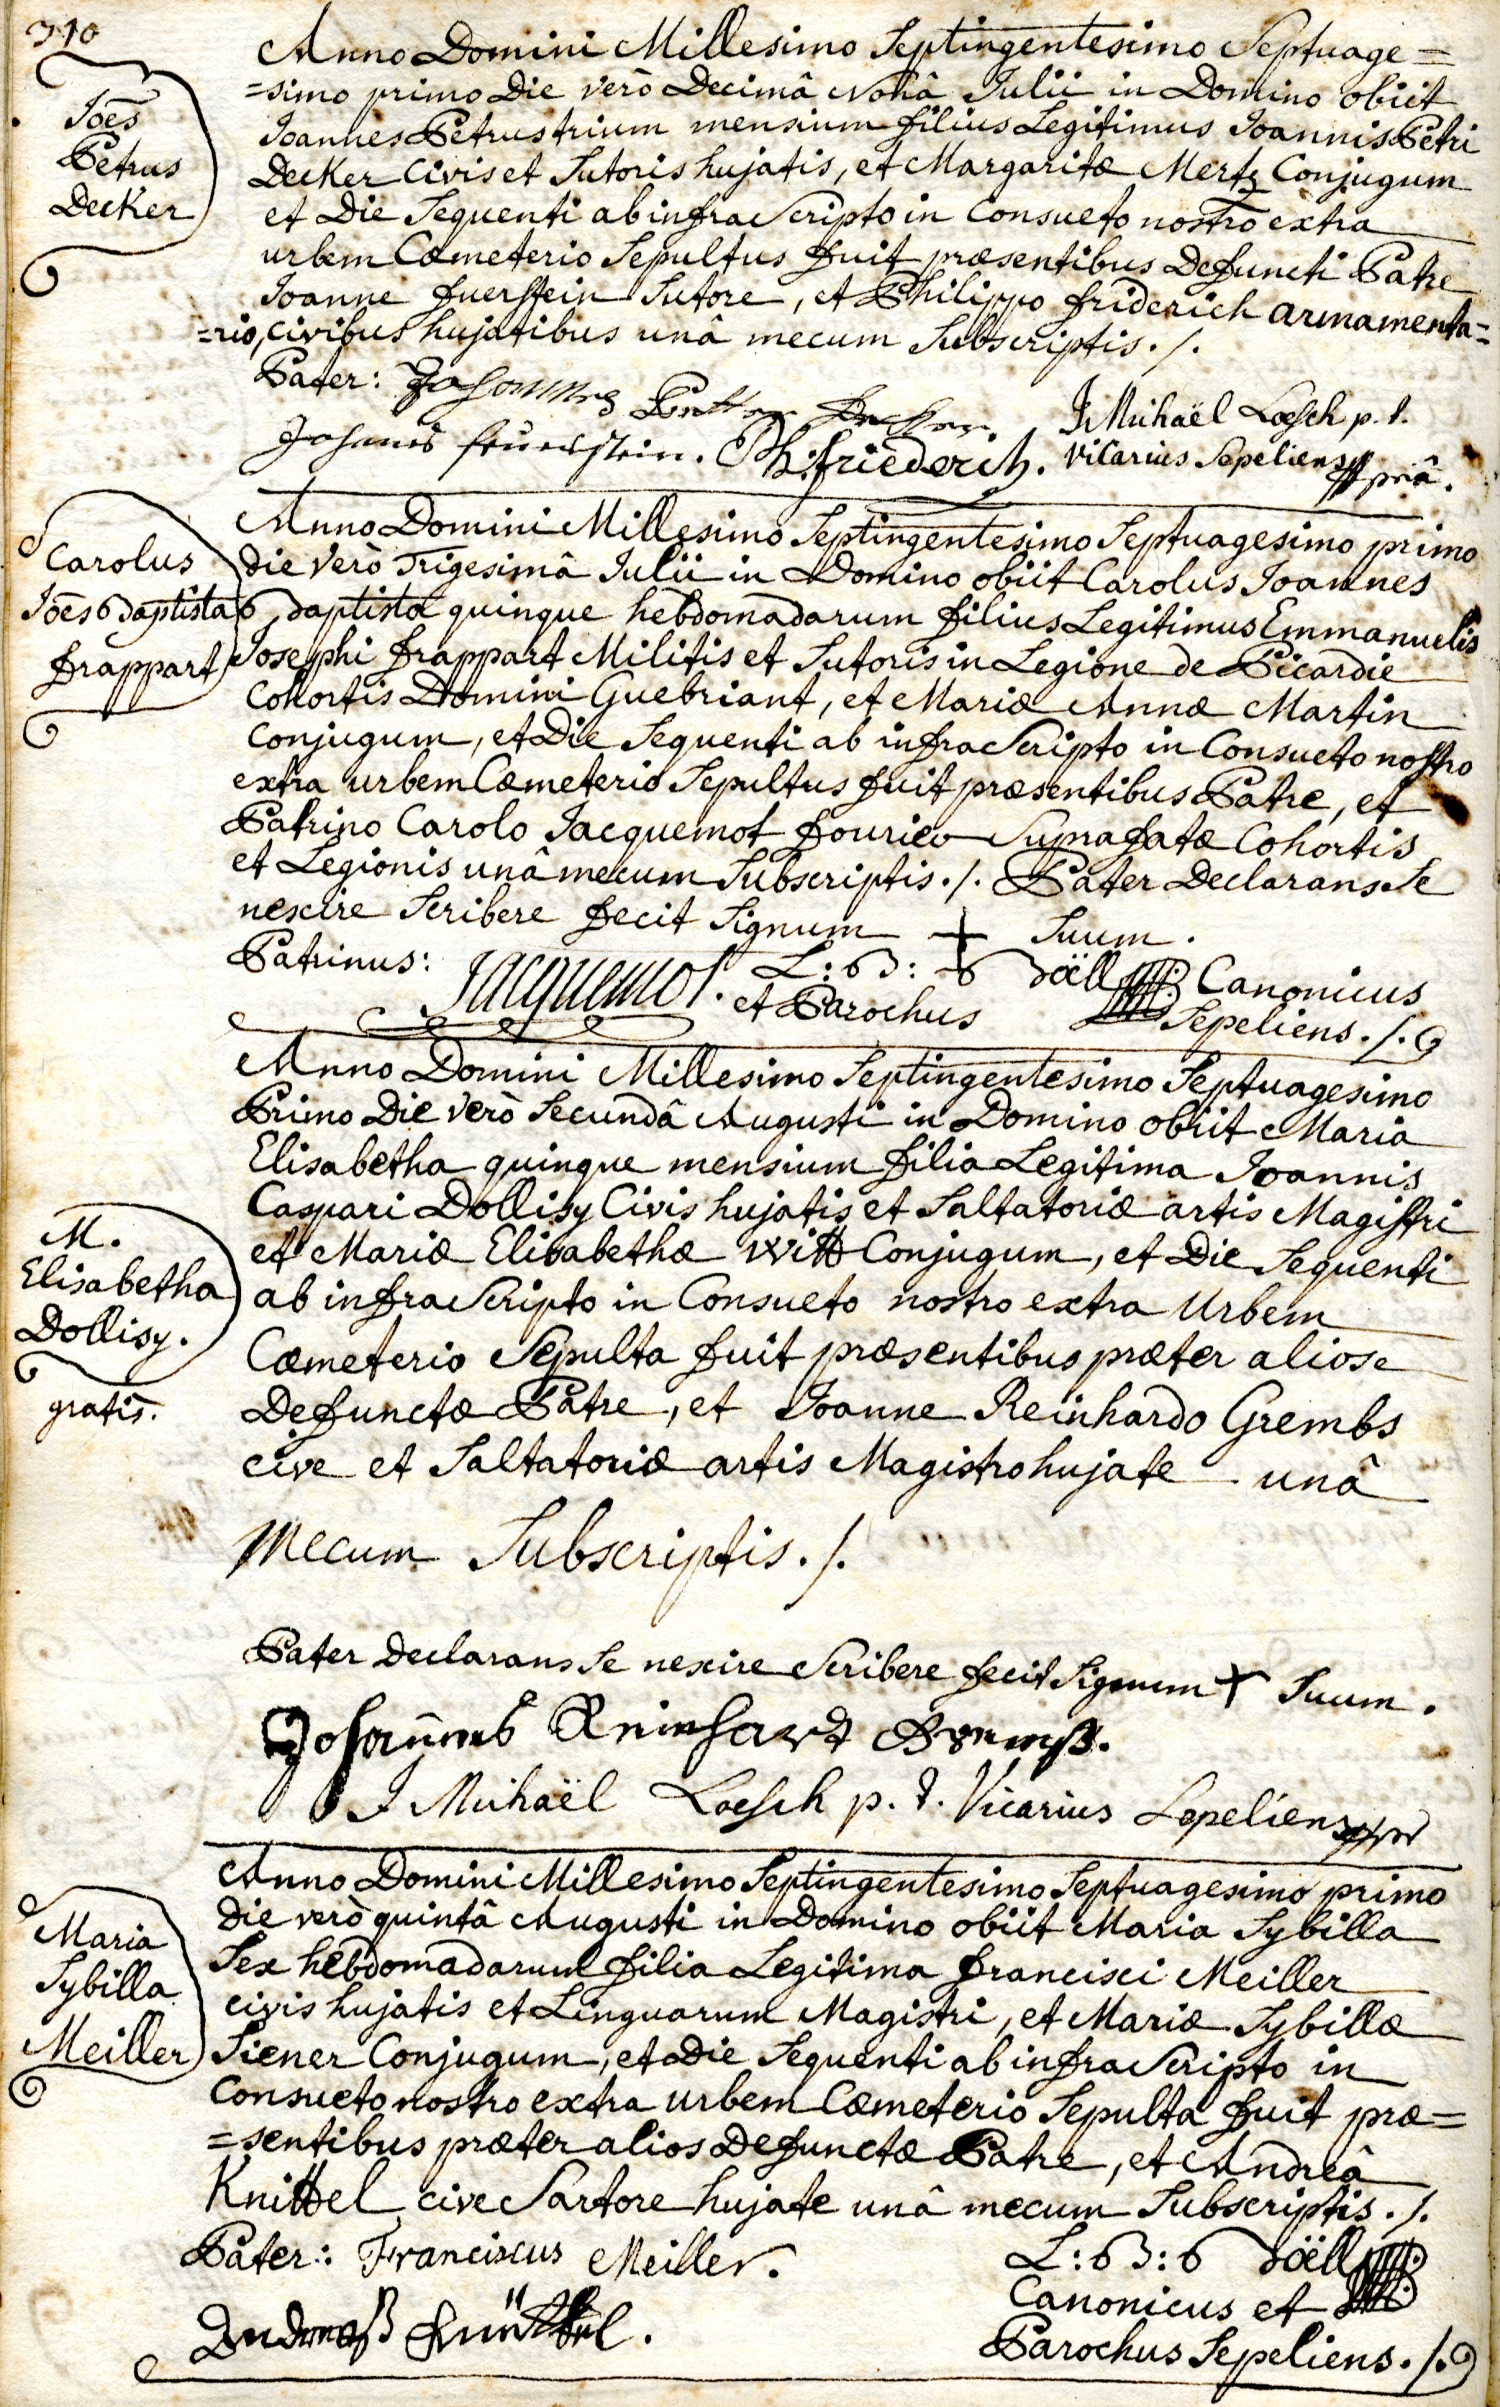 310
Anno Domini Millesimo Septingentesimo Septuage=
=simo primo Die verò Decimâ Nonâ Julii in Domino obiit
Joannes Petrus trium mensium filius Legitimus Joannis Petri
Decker Civis et Sutoris hujatis, et Margaritæ Mertz Conjugum
et Die Sequenti ab infra Scripto in Consueto nostro extra
urbem Cœmeterio Sepultus fuit præsentibus Defuncti Patre
Joanne fuerstein Sutore, et Philippo friderich armamenta=
=rio, civibus hujatibus unâ mecum Subscriptis ./.
Joês
Petrus
Decker
Pater: Johannes Petter Decker.
Johanes feuerstein. Ph: friederich.
J Michaël Loesch p. t.
vicarius Sepeliens priâ.
Anno Domini Millesimo Septingentesimo Septuagesimo primo
die Verò Trigesimâ Julii in Domino obiit Carolus Joannes
Baptista quinque hebdomadarum filius Legitimus Emmanuelis
Josephi frappart Militis et Sutoris in Legione de Picardie
Cohortis Domini Guebriant, et Mariæ Annæ Martin
Conjugum, et Die Sequenti ab infra Scripto in Consueto nostro
extra urbem Cœmeterio Sepultus fuit præsentibus Patre, et
Patrino Carolo Jacquemot fourier Suprafatæ Cohortis
et Legionis unâ mecum Subscriptis ./. Pater Declarans Se
nescire Scribere fecit Signum + Suum.
Carolus
Joês Baptista
frappart
Patrinus: Jacquemot. L: B: Böll Canonicus
et Parochus Sepeliens ./.
Anno Domini Millesimo Septingentesimo Septuagesimo
Primo Die Verò Secundâ Augusti in Domino obiit Maria
Elisabetha quinque mensium filia Legitima Joannis
Caspari Dollisy Civis hujatis et Saltatoriæ artis Magistri
et Mariæ Elisabethæ Witt Conjugum, et Die Sequenti
ab infra Scripto in Consueto nostro extra Urbem
Cœmeterio Sepulta fuit præsentibus præter alios
Defunctæ Patre, et Joanne Reinhardo Grembs
cive et Saltatoriæ artis Magistro hujate unâ
mecum Subscriptis ./.
M.
Elisabetha
Dollisy.
gratis.
Pater Declarans Se nescire Scribere fecit Signum + Suum.
Johannes Reinhardt
J Michaël Loesch p. t. Vicarius Sepeliens
Anno Domini Millesimo Septingentesimo Septuagesimo primo
die verò quintâ Augusti in Domino obiit Maria Sybilla
Sex hebdomadarum filia Legitima francisci Meiller
civis hujatis et Linguarum Magistri, et Mariæ Sybillæ
Siener Conjugum, et Die Sequenti ab infra Scripto in
Consueto nostro extra urbem Cœmeterio Sepulta fuit præ=
=sentibus præter alios Defunctæ Patre, et Andreâ
Knittel cive Sartore hujate unâ mecum Subscriptis ./.
Maria
Sybilla
Meiller
Pater: Franciscus Meiller.
L: B: Böll
Canonicus et
Parochus Sepeliens ./.